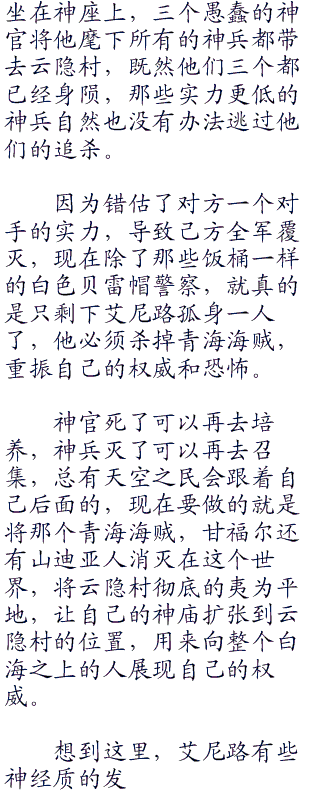 坐在神座上，三个愚蠢的神
官将他麾下所有的神兵都带
去云隐村，既然他们三个都
已经身陨，那些实力更低的
神兵自然也没有办法逃过他
们的追杀。
因为错估了对方一个对
手的实力，导致己方全军覆
灭，现在除了那些饭桶一样
的白色贝雷帽警察，就真的
是只剩下艾尼路孤身一人
了，他必须杀掉青海海贼，
重振自己的权威和恐怖。
神官死了可以再去培
养，神兵灭了可以再去召
集，总有天空之民会跟着自
己后面的，现在要做的就是
将那个青海海贼，甘福尔还
有山迪亚人消灭在这个世
界，将云隐村彻底的夷为平
地，让自己的神庙扩张到云
隐村的位置，用来向整个白
海之上的人展现自己的权
威。
想到这里，艾尼路有些
神经质的发